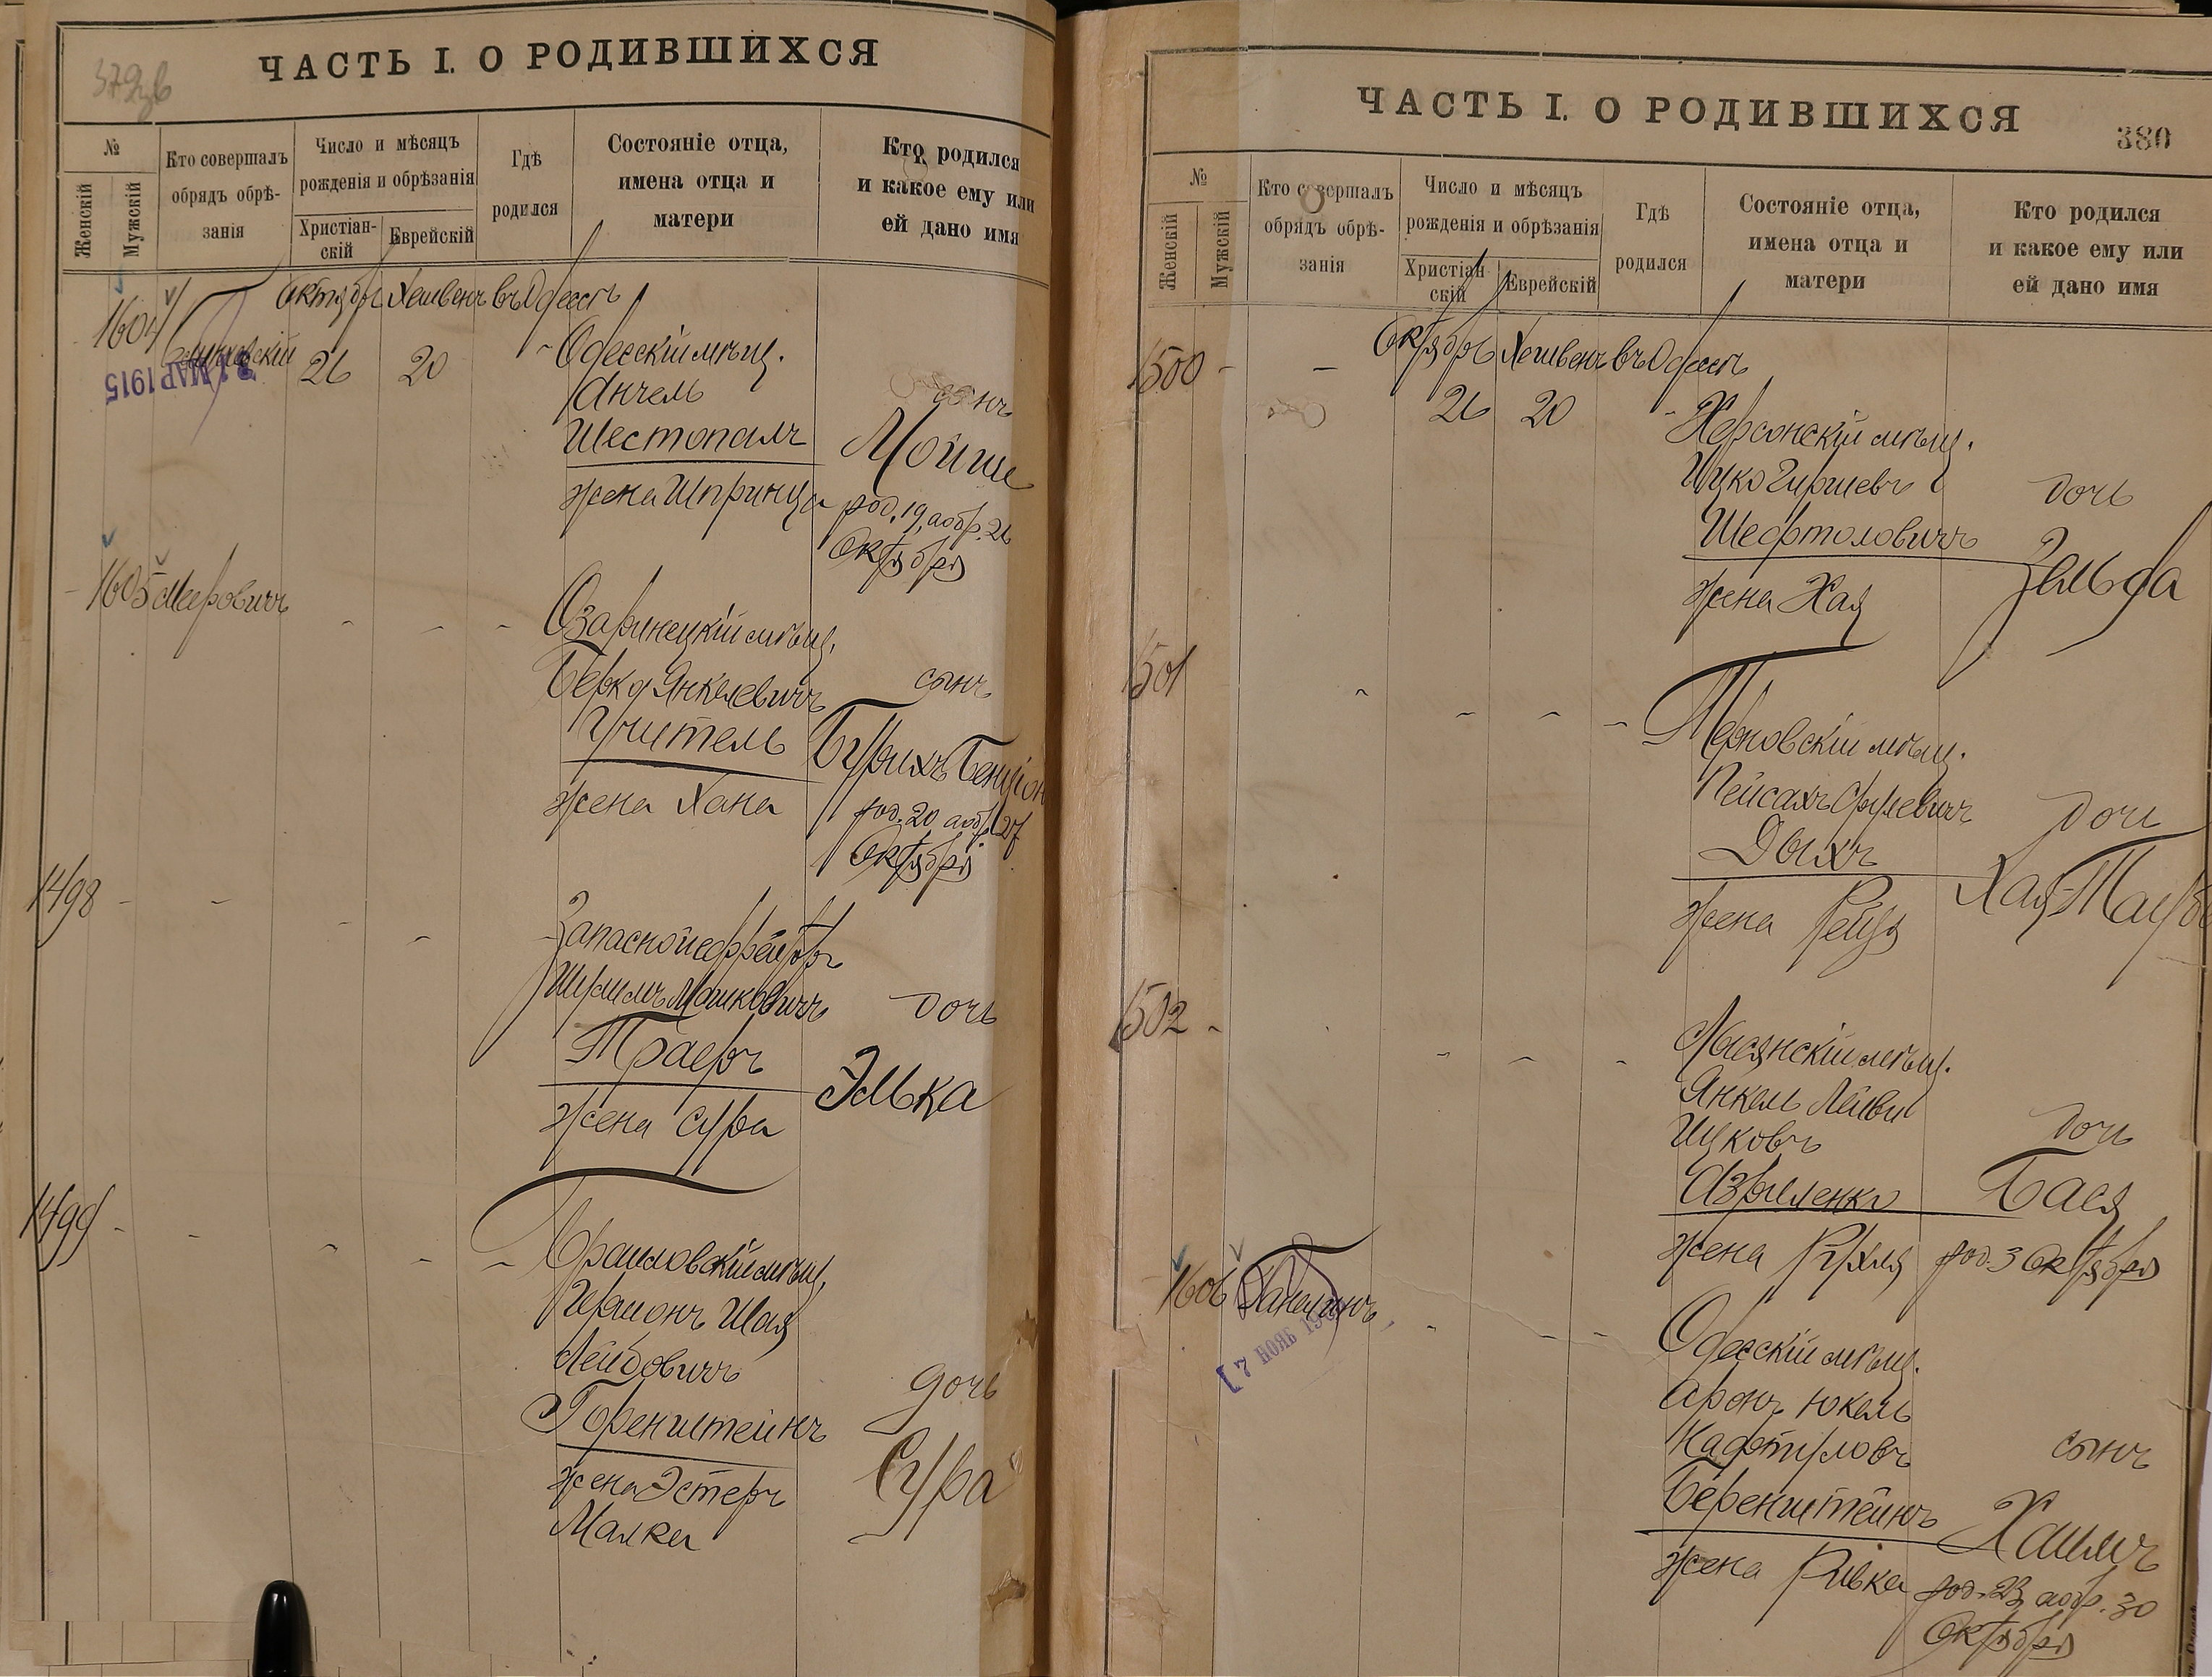 ЧАСТЬ I. О РОДИВШИХСЯ
№
Женскій
Мужскій
Кто совершалъ
обрядъ обрѣ-
занія
Число и мѣсяцъ
рожденія и обрѣзанія
Христіан-
скій
Еврейскій
Гдѣ
родился
Состояніе отца,
имена отца и
матери
Кто родился
и какое ему или
ей дано имя
1604
Октябрь Хешвенъ въ Одессѣ
26 20
31 МАР 1915
Одесскій мѣщ.
Анчель
Шестопалъ
жена Шпринца
сынъ
Мойше
род. 19, а обр. 26
Октября
1605 Меровичъ
Озаринецкій мѣщ.
Берко Янкелевичъ
Учитель
жена Хана
сынъ
Бурихъ Бенціон
род. 20 а обр. 27
Октября
1498
Запасной ефрейторъ
Шулимъ Мошковичъ
Траеръ
жена Сура
дочь
Элька
1499
Браиловскій мѣщ.
Гершонъ Шая
Лейбовичъ
Горенштейнъ
жена Эстеръ
Малка
дочь
Сура
ЧАСТЬ I. О РОДИВШИХСЯ
380
№
Женскій
Мужскій
Кто совершалъ
обрядъ обрѣ-
занія
Число и мѣсяцъ
рожденія и обрѣзанія
Христіан
скій
Еврейскій
Гдѣ
родился
Состояніе отца,
имена отца и
матери
Кто родился
и какое ему или
ей дано имя
1500
Октябрь Хешвенъ въ Одессѣ
26 20
Херсонскій мѣщ.
Ицко Гиршевъ
Шефтоловичъ
жена Хая
дочь
Зельда
1501
Терновскій мѣщ.
Пейсахъ Срулевичъ
Дыхъ
жена Рейзя
дочь
Хая-Тауба
1502
Лысянскій мѣщ.
Янкель Лейви
Ицковъ
Азриленко
жена Рухля
дочь
Бася
род. 3 Октября
1606
7 НОЯБ
Одесскій мѣщ.
Аронъ Юкель
Нафтуловъ
Беренштейнъ
жена Ривка
сынъ
Хаимъ
род. 23, а обр. 30
Октября